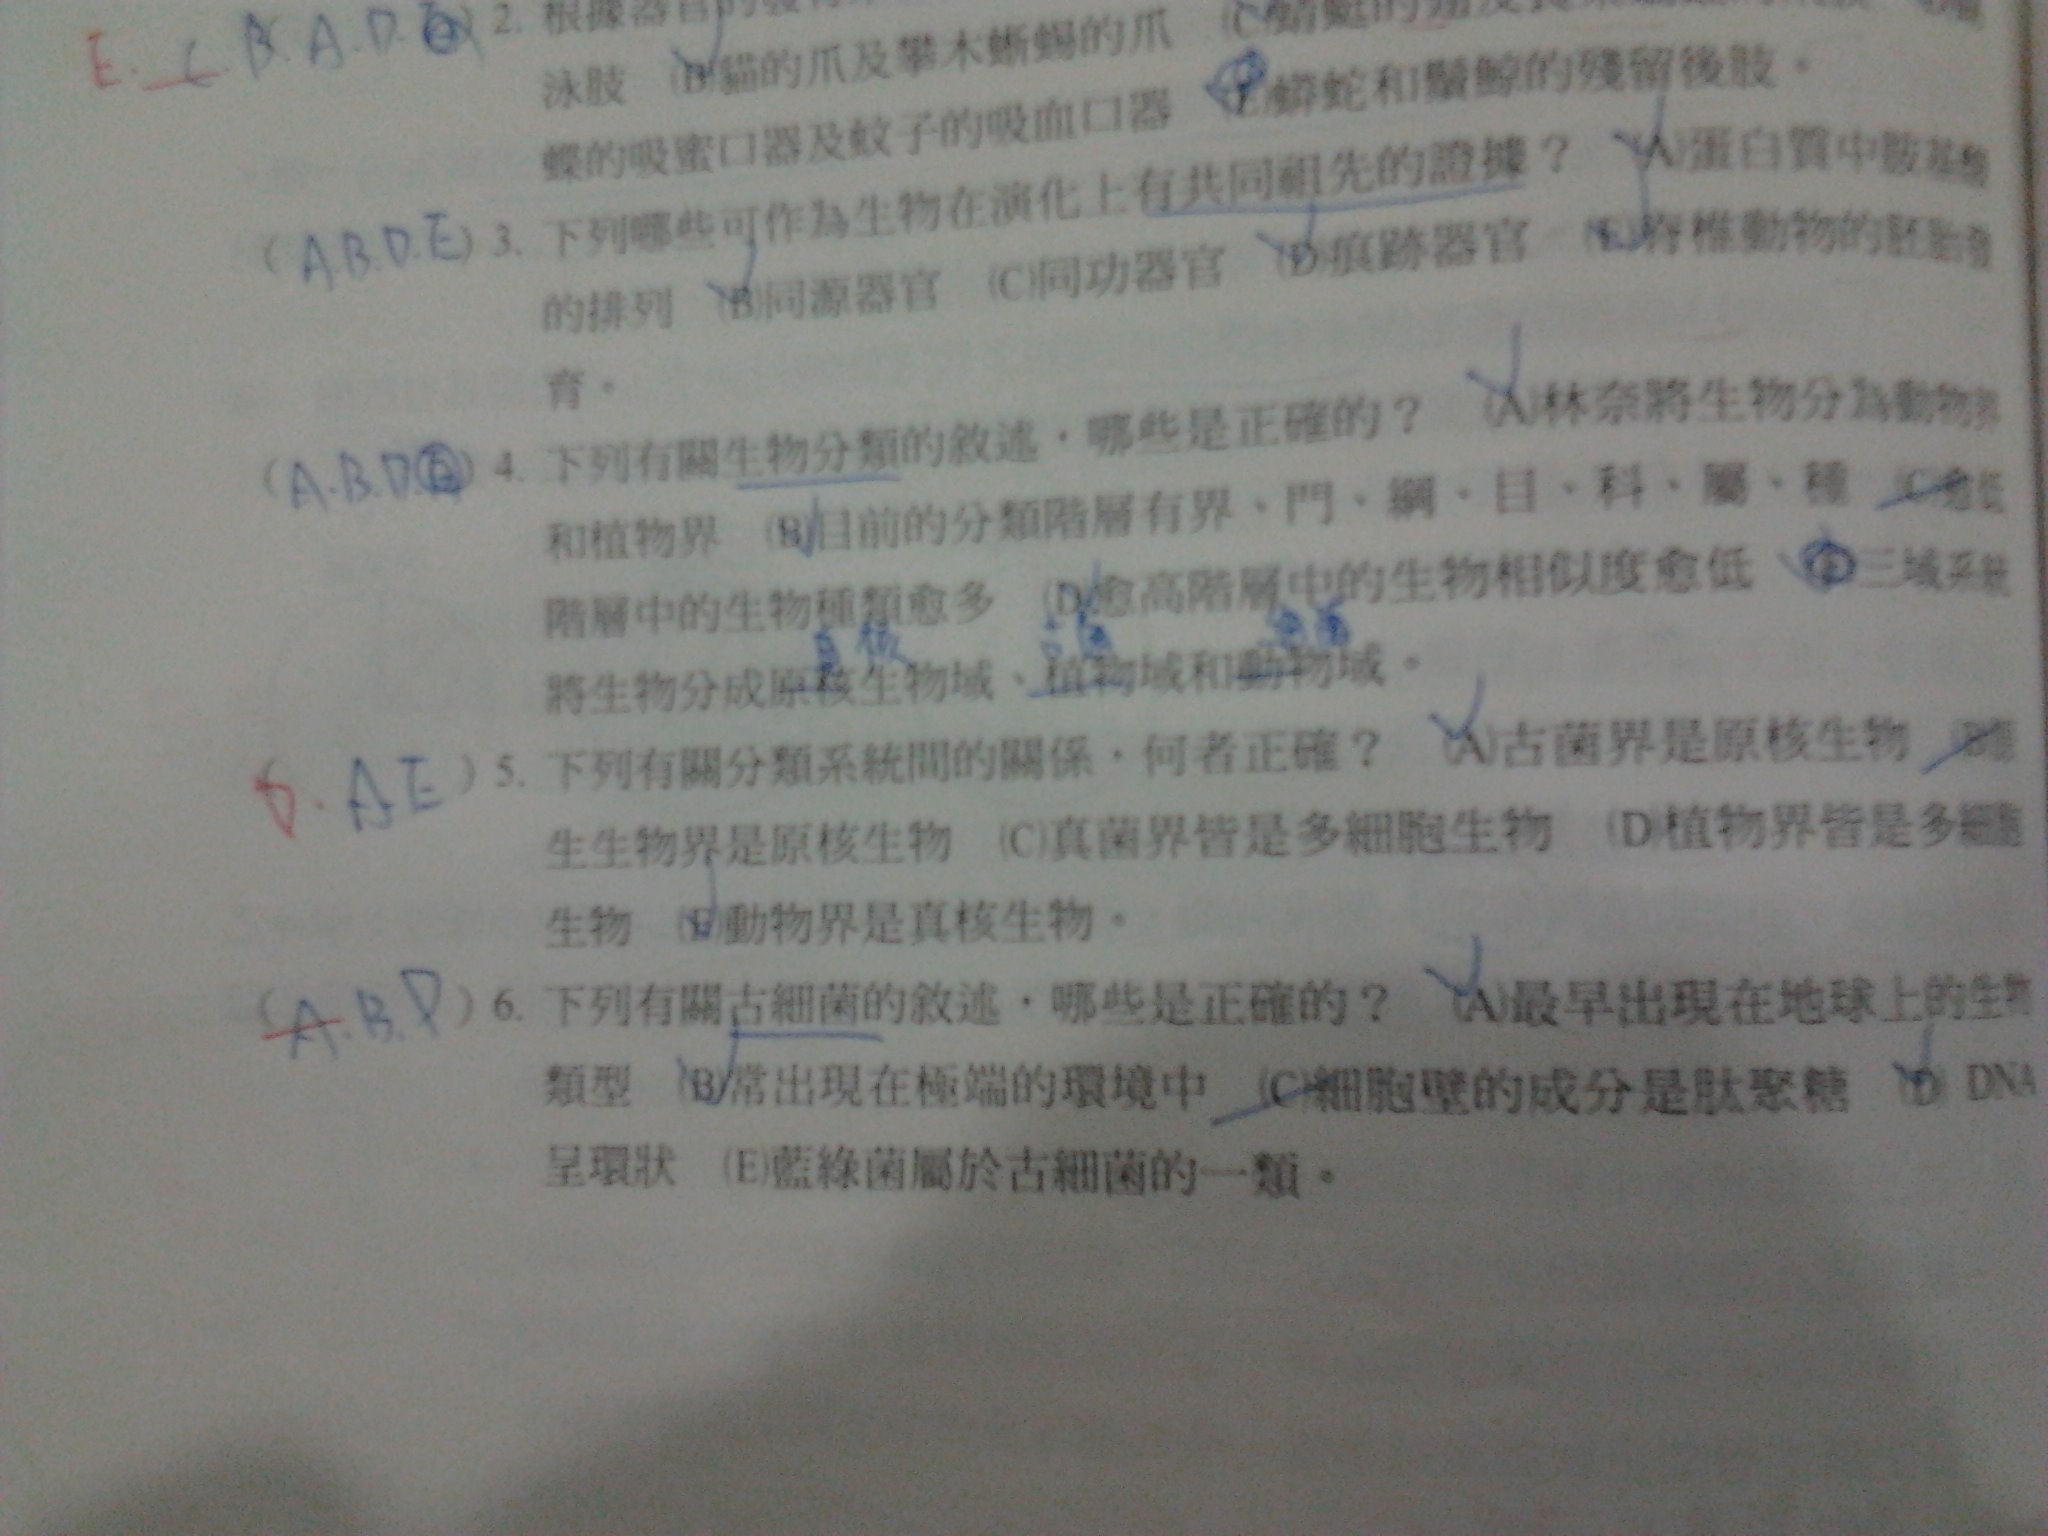 E. C B. A. D. 2. 根據器官的發育
泳肢 (B)貓的爪及攀木蜥蜴的爪 (C)蜻蜓的翅及
蝶的吸蜜口器及蚊子的吸血口器 (E)蟒蛇和鬚鯨的殘留後肢。
(A.B.D.E) 3. 下列哪些可作為生物在演化上有共同祖先的證據？ (A)蛋白質中胺基酸
的排列 (B)同源器官 (C)同功器官 (D)痕跡器官 (E)脊椎動物的胚胎發
育。
(A.B.D.) 4. 下列有關生物分類的敘述，哪些是正確的？ (A)林奈將生物分為動物界
和植物界 (B)目前的分類階層有界、門、綱、目、科、屬、種 (C)愈低
階層中的生物種類愈多 (D)愈高階層中的生物相似度愈低 三域系統
真核 古菌 細菌
將生物分成原核生物域、植物域和動物域。
(D. AE) 5. 下列有關分類系統間的關係，何者正確？ (A)古菌界是原核生物 (B)原
生生物界是原核生物 (C)真菌界皆是多細胞生物 (D)植物界皆是多細胞
生物 (E)動物界是真核生物。
(A.B.D) 6. 下列有關古細菌的敘述，哪些是正確的？ (A)最早出現在地球上的生物
類型 (B)常出現在極端的環境中 (C)細胞壁的成分是肽聚糖 (D) DNA
呈環狀 (E)藍綠菌屬於古細菌的一類。